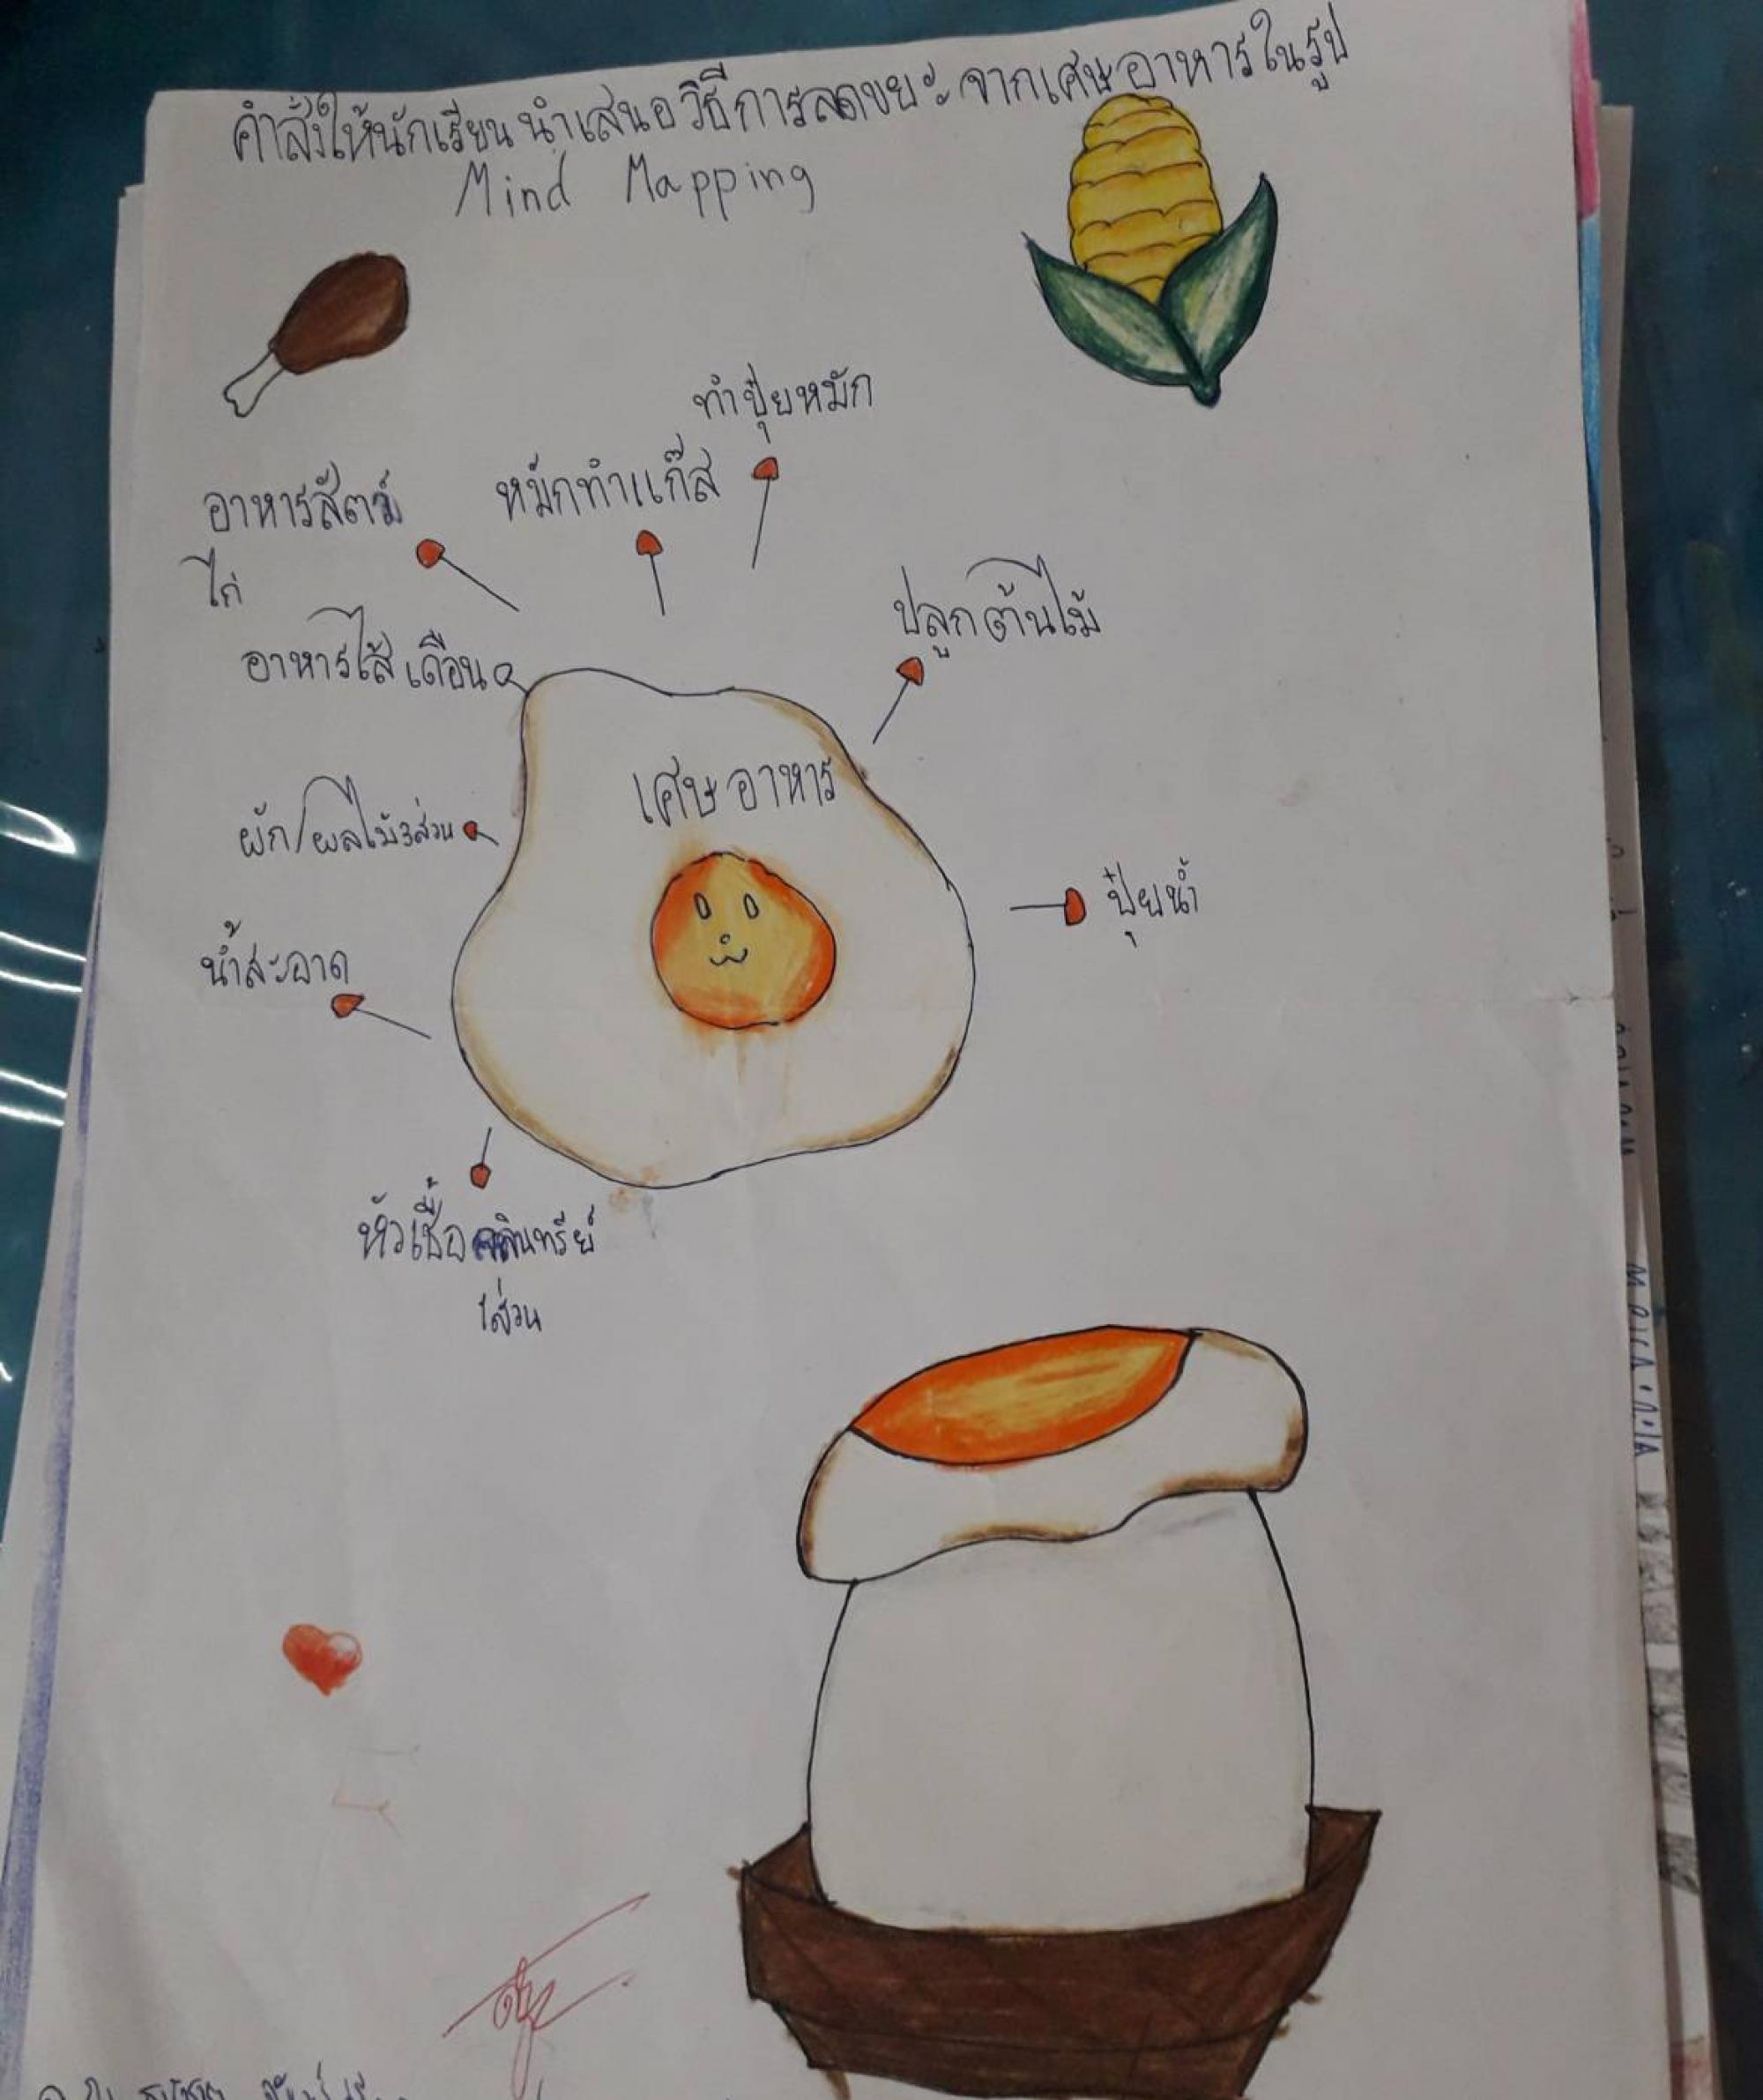 คำสั่งให้นักเรียนนำเสนอวิธีการลดขยะจากเศษอาหารในรูป
Mind Mapping
ทำปุ๋ยหมัก
หมักทำแก๊ส
อาหารสัตว์
ไก่
ปลูกต้นไม้
อาหารไส้เดือน
เศษอาหาร
ผัก/ผลไม้3ส่วน
ปุ๋ยน้ำ
น้ำสะอาด
หัวเชื้อจุลินทรีย์
1ส่วน